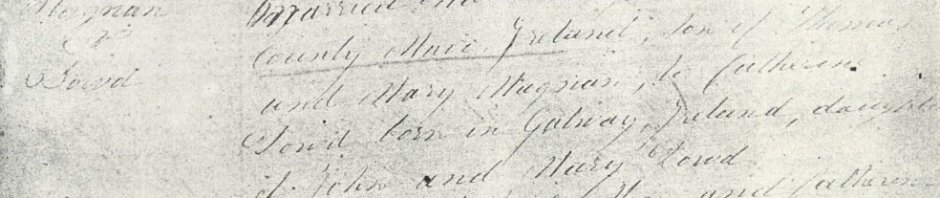 Magnan
&
Dowd
Married
County Mayo Ireland, Son of Thomas
and Mary Magnan, to Catherine
Dowd born in Galway, Ireland, daughter
of John and Mary Dowd
and Catherine